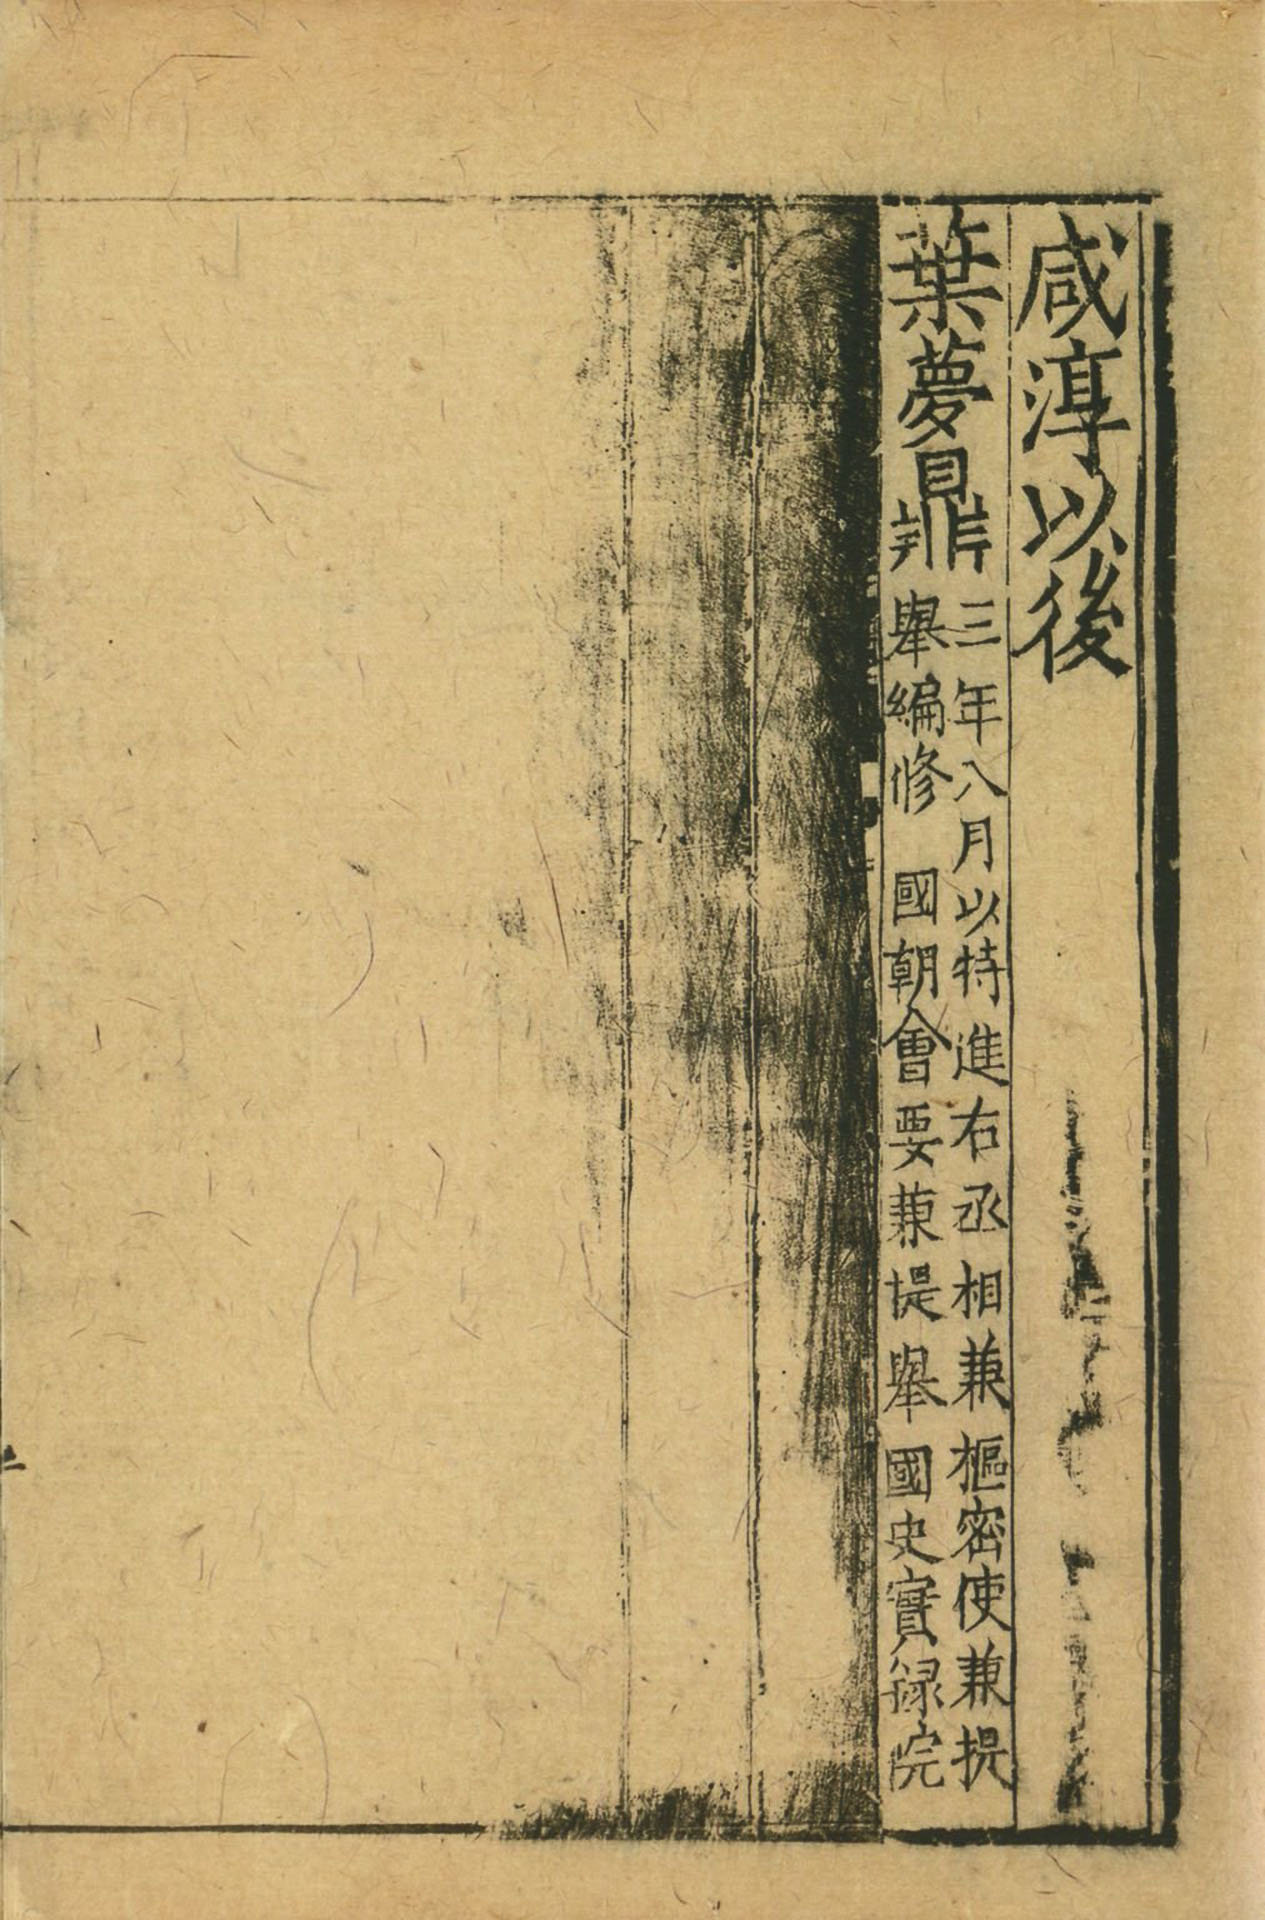 咸淳以後
葉夢鼎
三年八月以特進右丞相兼樞密使兼提
舉編修 國朝會要兼提舉國史實録院